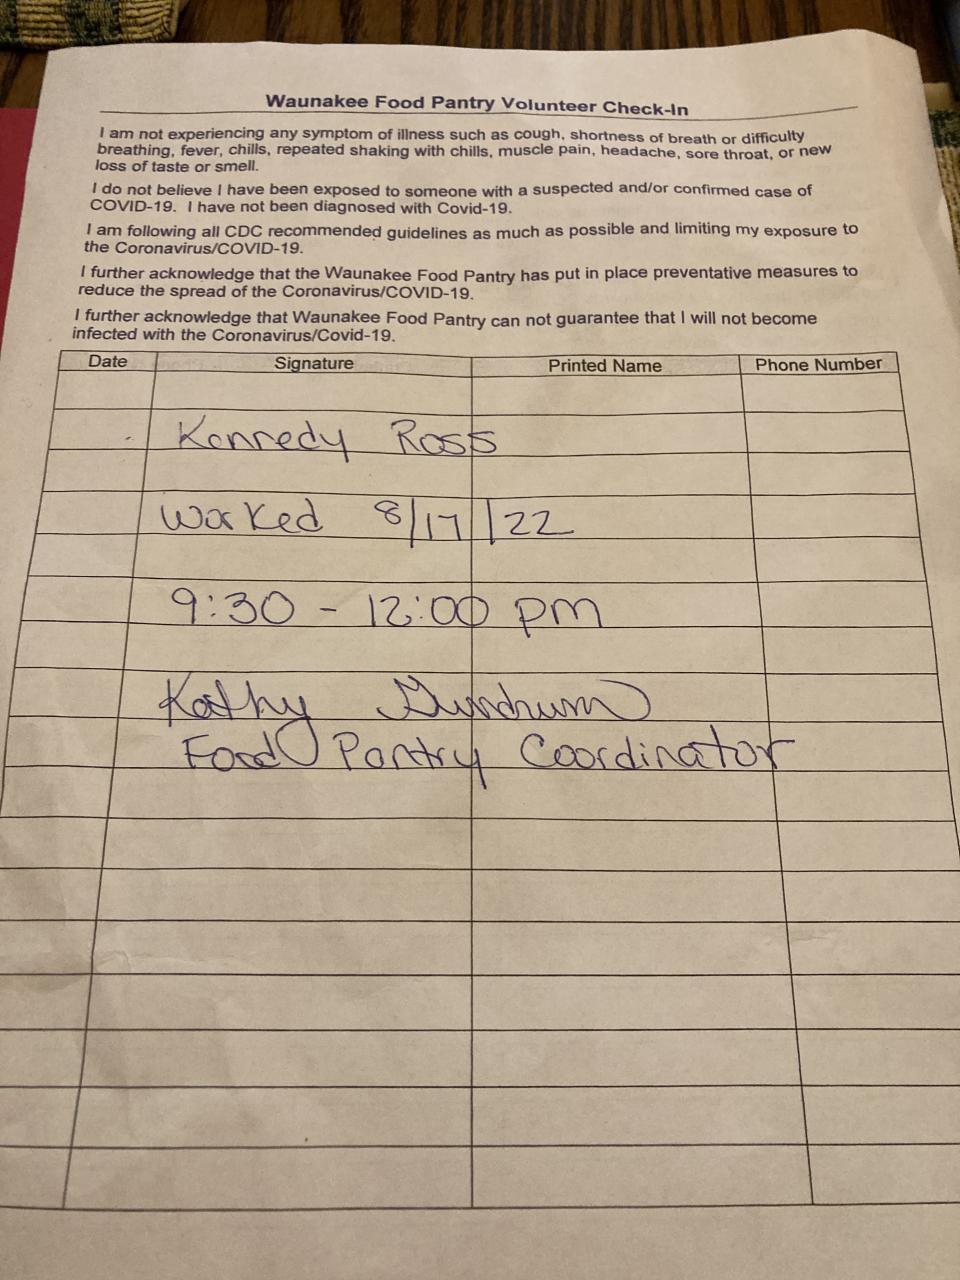 Waunakee Food Pantry Volunteer Check-In
I am not experiencing any symptom of illness such as cough, shortness of breath or difficulty
breathing, fever, chills, repeated shaking with chills, muscle pain, headache, sore throat, or new
loss of taste or smell.
I do not believe I have been exposed to someone with a suspected and/or confirmed case of
COVID-19. I have not been diagnosed with Covid-19.
I am following all CDC recommended guidelines as much as possible and limiting my exposure to
the Coronavirus/COVID-19.
I further acknowledge that the Waunakee Food Pantry has put in place preventative measures to
reduce the spread of the Coronavirus/COVID-19.
I further acknowledge that Waunakee Food Pantry can not guarantee that I will not become
infected with the Coronavirus/Covid-19.
Date Signature Printed Name Phone Number
Kennedy Ross
Worked 8/17/22
9:30 - 12:00 pm
Kathy Gundrum
Food Pantry Coordinator